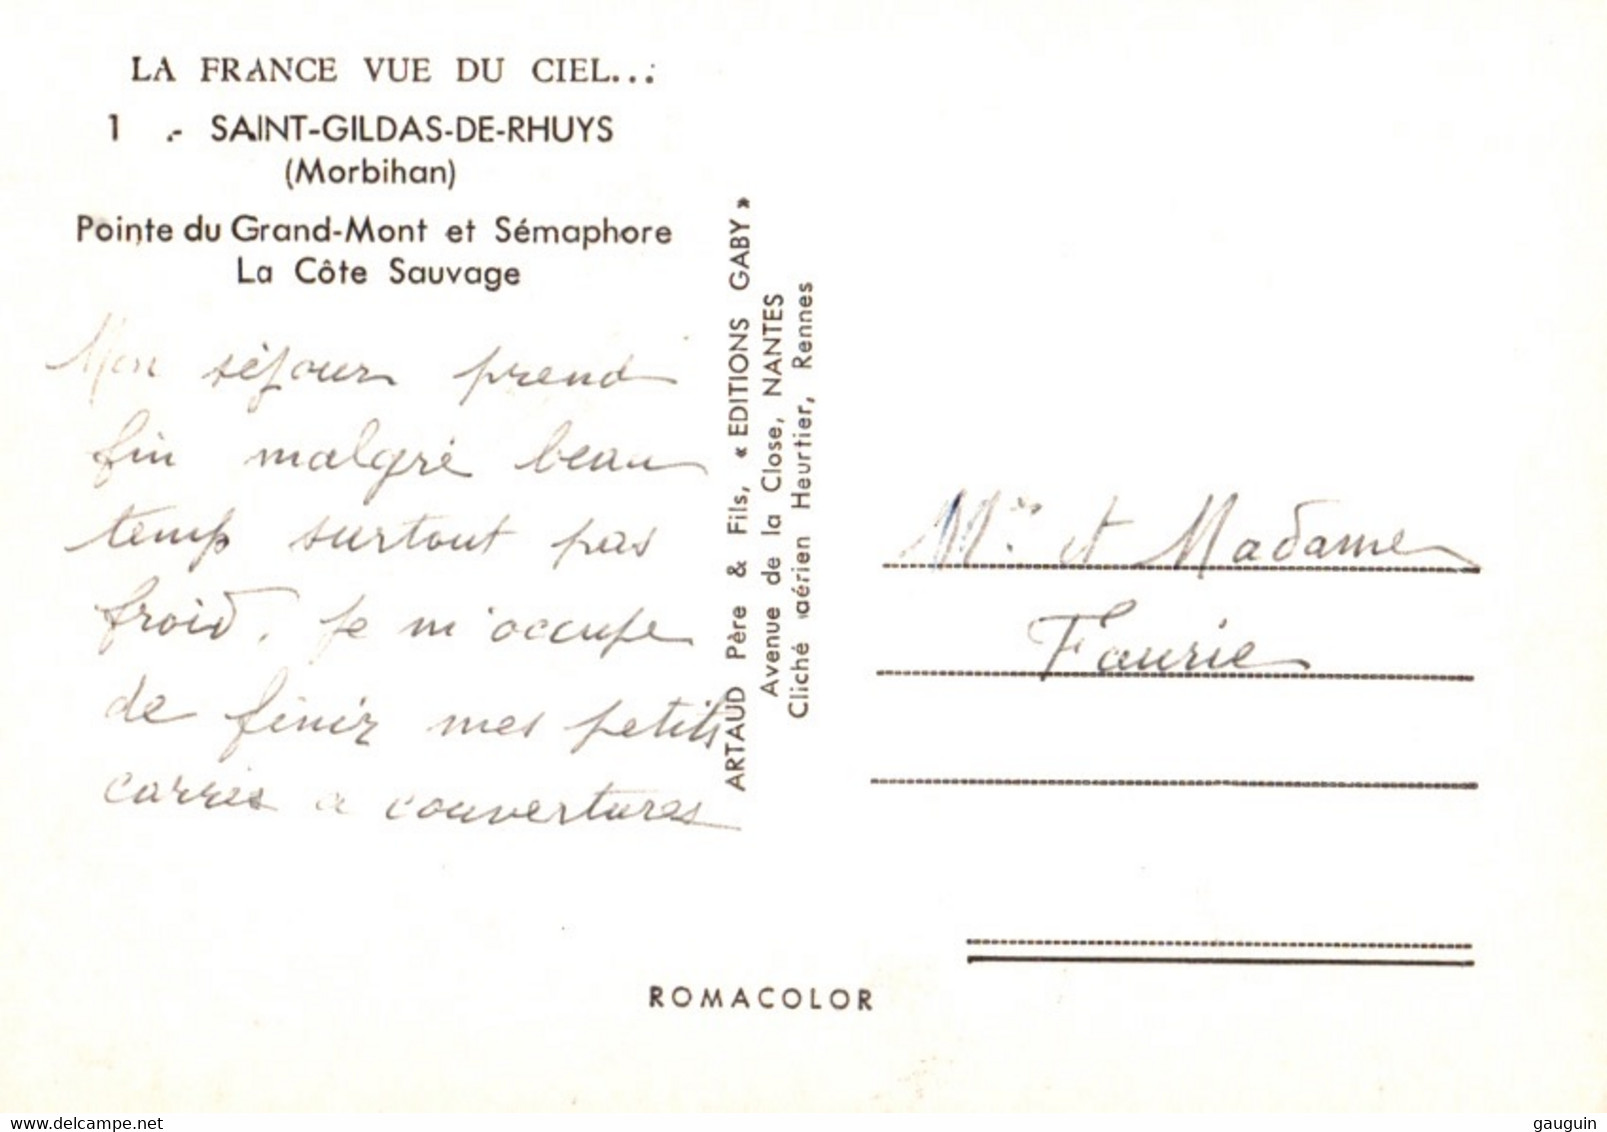 LA FRANCE VUE DU CIEL...
1 .- SAINT-GILDAS-DE-RHUYS
(Morbihan)
Pointe du Grand-Mont et Sémaphore
La Côte Sauvage
Mon séjour prend
fin malgré beau
temp surtout pas
froid. Je m'occupe
de finir mes petits
carrés a couvertures
ARTAUD Père & Fils, « EDITIONS GABY »
Avenue de la Close, NANTES
Cliché aérien Heurtier, Rennes
Mr. et Madame
Faurie
ROMACOLOR
gauguin © delcampe.net